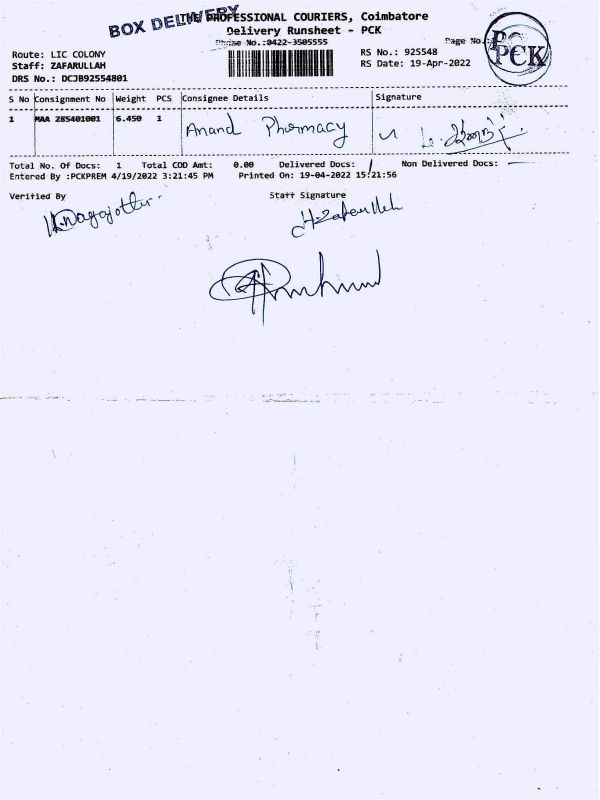 BOX DELIVERY
THE PROFESSIONAL COURIERS, Coimbatore
Delivery Runsheet - PCK
Phone No.:0422-3505555
Page No.:
PCK
Route: LIC COLONY
RS No.: 925548
Staff: ZAFARULLAH
RS Date: 19-Apr-2022
DRS No.: DCJB92554801
S No Consignment No Weight PCS Consignee Details Signature
1 MAA 285401001 6.450 1 Anand Pharmacy
Total No. Of Docs: 1 Total COD Amt: 0.00 Delivered Docs: / Non Delivered Docs: —
Entered By :PCKPREM 4/19/2022 3:21:45 PM Printed On: 19-04-2022 15:21:56
Verified By Staff Signature